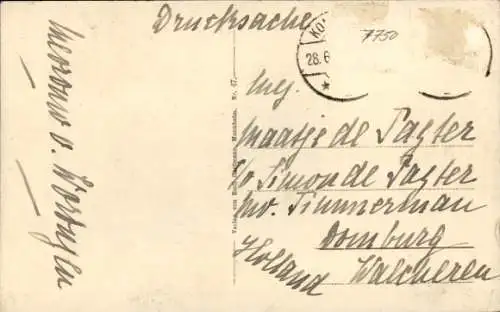 Drucksache
7750
28.6
Mej.
Maatje de Pagter
p/o Simon de Pagter
Mr. Timmerman
Domburg
Holland Walcheren
Mevrouw v.
Verlag von
Mannheim. Nr. 47.